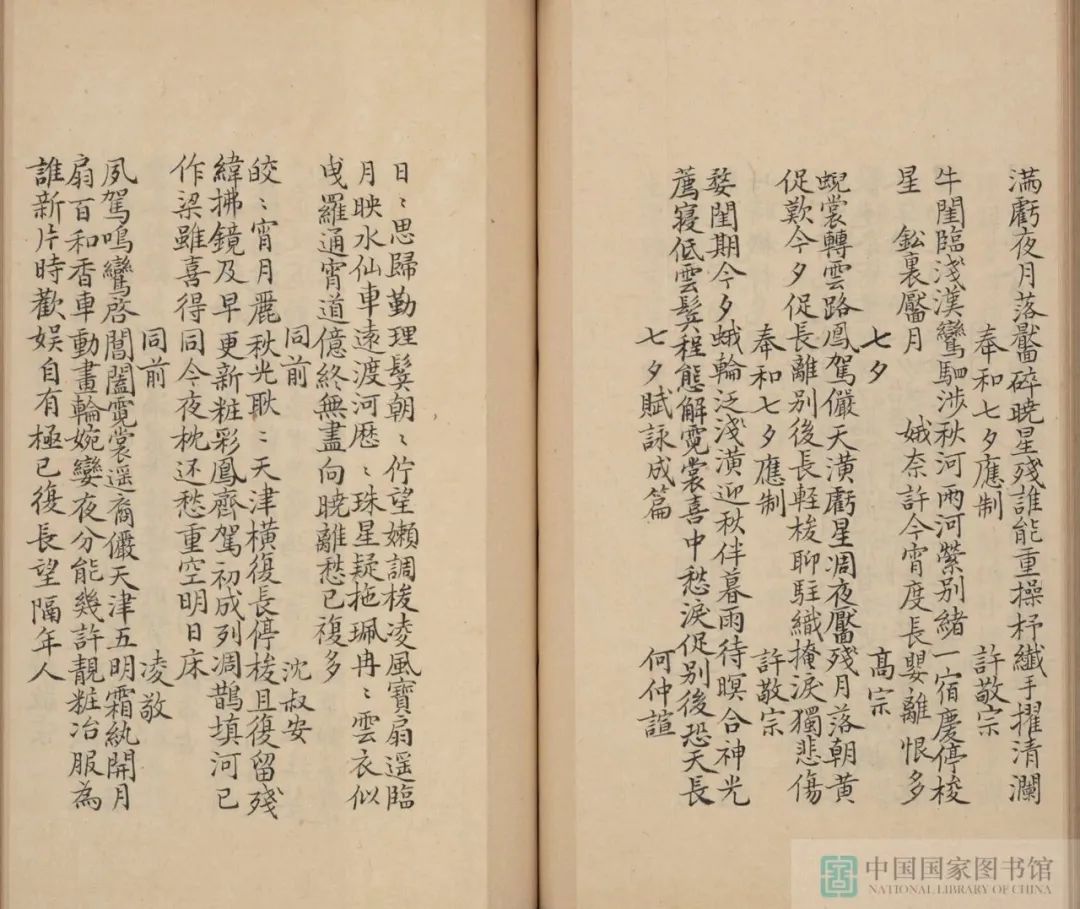 滿虧夜月落靨碎曉星殘誰能重操杼纖手擢清瀾
奉和七夕應制 許敬宗
牛閨臨淺漢鸞駟涉秋河兩河縈別緒一宿慶停梭
星 鈆裏靨月 娥奈許今宵度長嬰離恨多
七夕 髙宗
蜺裳轉雲路鳳駕儼天潢虧星凋夜靨殘月落朝黃
促歎今夕促長離別後長輕梭聊駐織掩淚獨悲傷
奉和七夕應制 許敬宗
婺閨期今夕蛾輪泛淺潢迎秋伴暮雨待暝合神光
薦寢低雲鬂程態解霓裳喜中愁淚促別後恐天長
七夕賦詠成篇 何仲諠
日〻思歸勤理鬂朝〻佇望嬾調梭凌風寶扇遥臨
月映水仙車遠渡河歷〻珠星疑拖珮冉〻雲衣似
曳羅通宵道億終無盡向曉離愁已複多
同前 沈叔安
皎〻宵月麗秋光耿〻天津橫復長停梭且復留殘
緯拂鏡及早更新粧彩鳳齊駕初成列凋鵲填河已
作梁雖喜得同今夜枕还愁重空明日床
同前 凌敬
夙駕鳴鸞啓閶闔霓裳遥裔儼天津五明霜紈開月
扇百和香車動畫輪婉孌夜分能幾許靚粧冶服為
誰新片時歡娱自有極已復長望隔年人
中国国家图书馆
NATIONAL LIBRARY OF CHINA